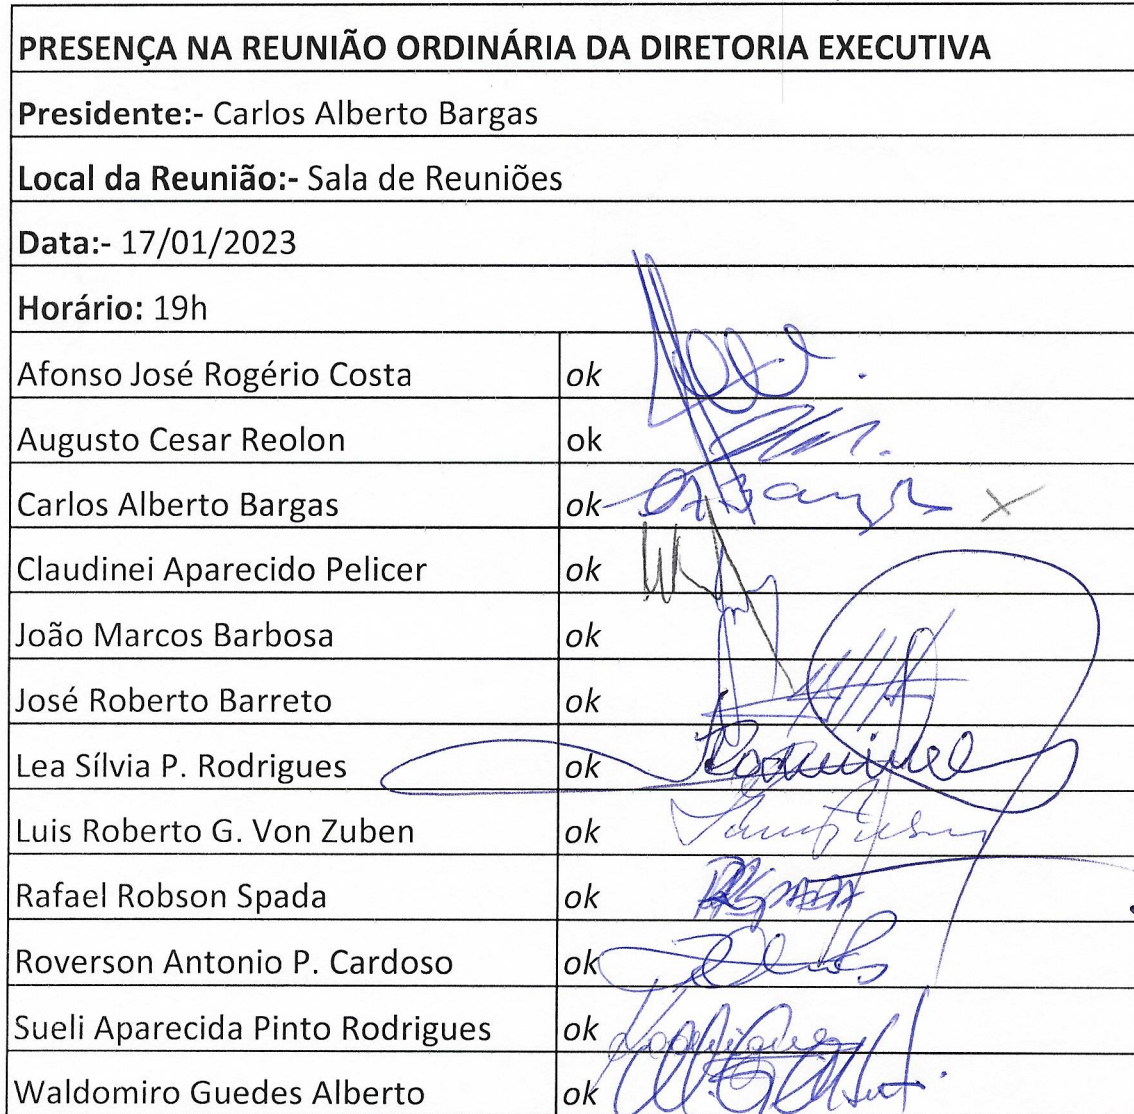 PRESENÇA NA REUNIÃO ORDINÁRIA DA DIRETORIA EXECUTIVA
Presidente:- Carlos Alberto Bargas
Local da Reunião:- Sala de Reuniões
Data:- 17/01/2023
Horário: 19h
Afonso José Rogério Costa ok
Augusto Cesar Reolon ok
Carlos Alberto Bargas ok
Claudinei Aparecido Pelicer ok
João Marcos Barbosa ok
José Roberto Barreto ok
Lea Sílvia P. Rodrigues ok
Luis Roberto G. Von Zuben ok
Rafael Robson Spada ok
Roverson Antonio P. Cardoso ok
Sueli Aparecida Pinto Rodrigues ok
Waldomiro Guedes Alberto ok